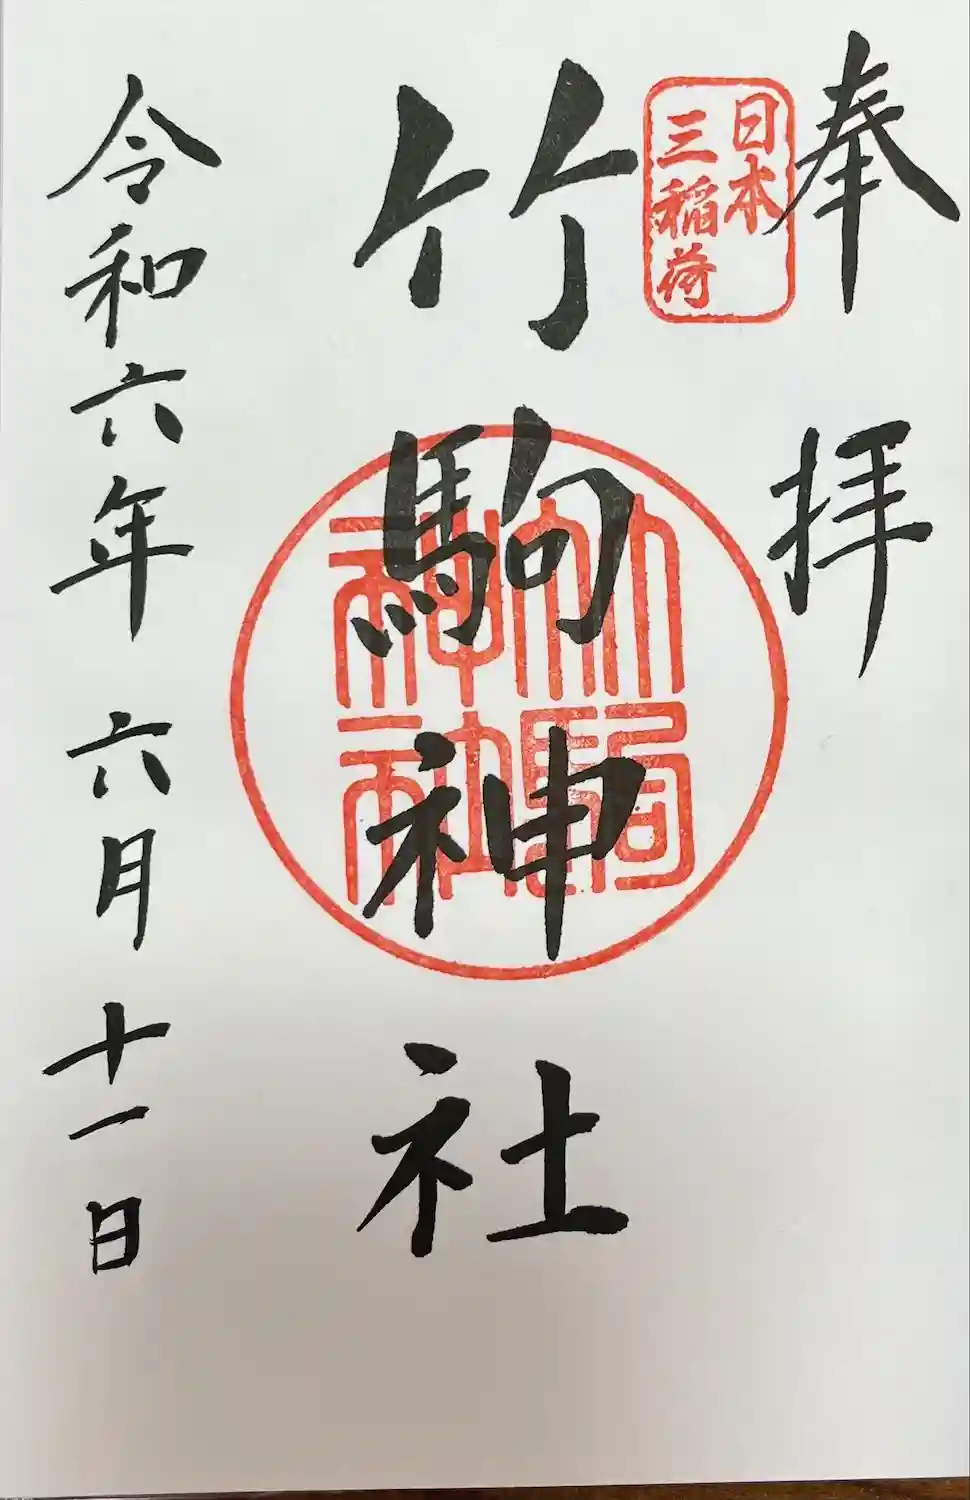 奉拝
日本
三稲荷
竹駒神社
竹駒
神社
令和六年 六月 十一日